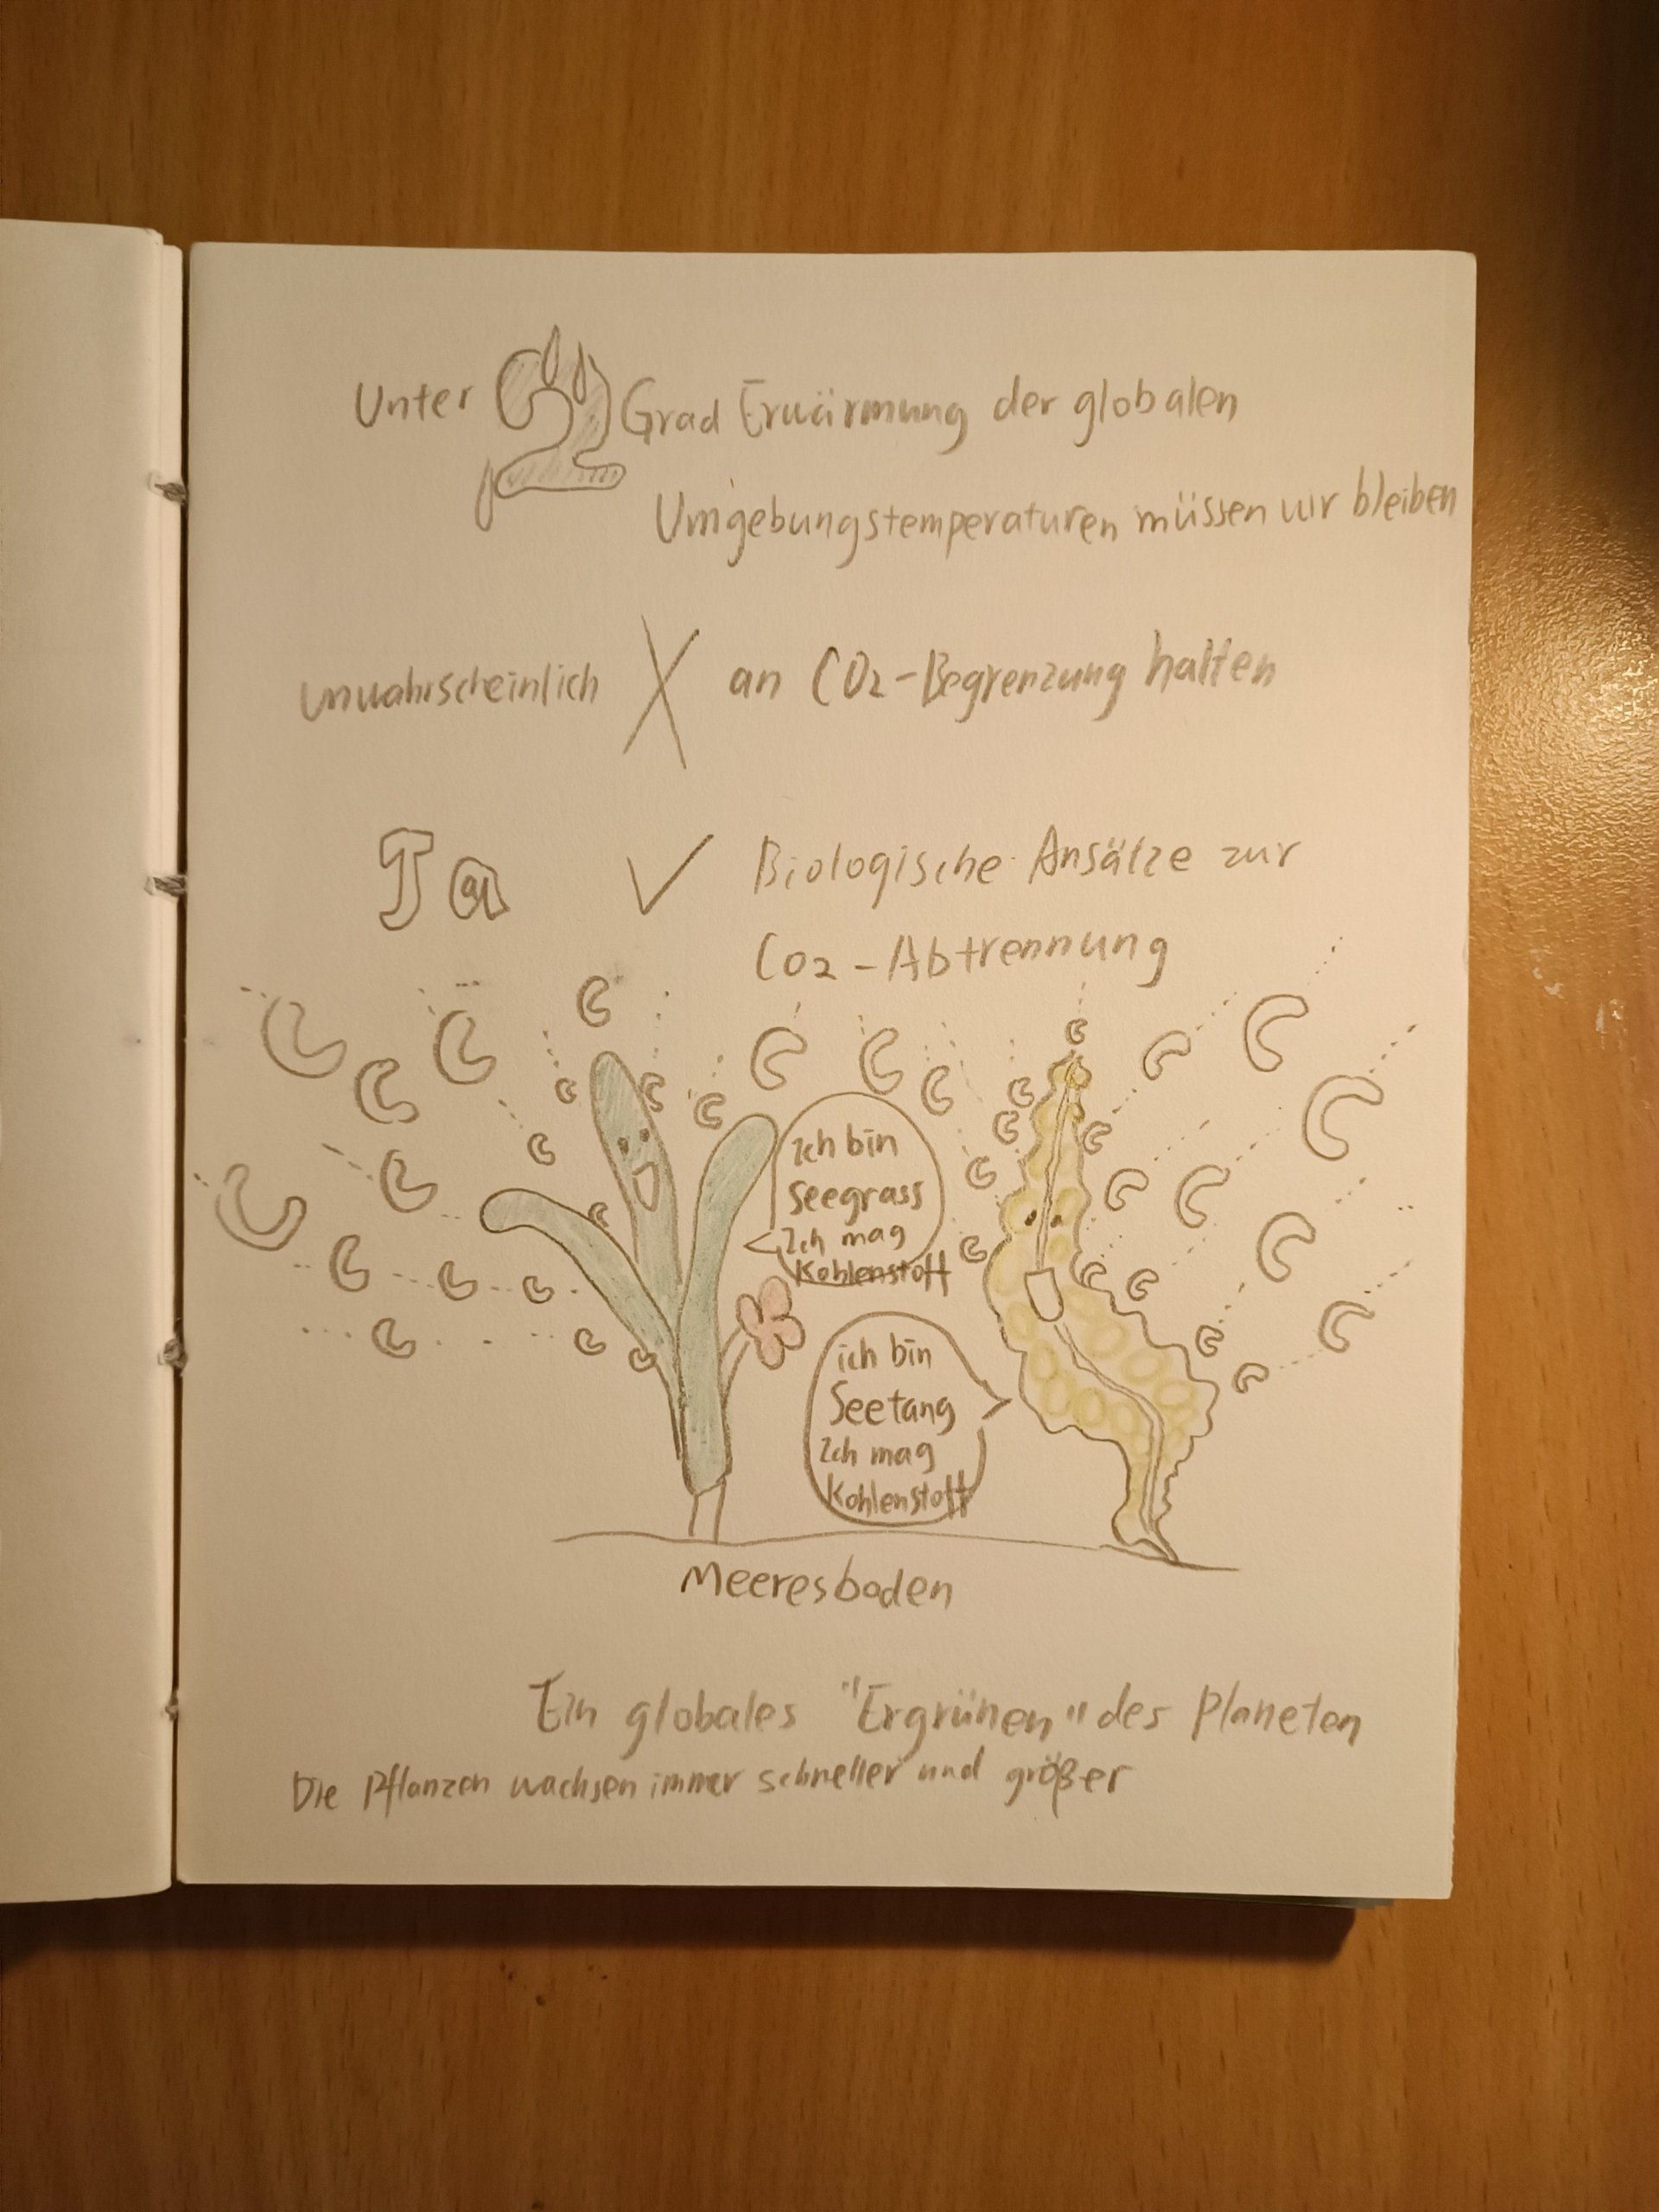 Unter 2 Grad Erwärmung der globalen
Umgebungstemperaturen müssen wir bleiben
unwahrscheinlich X an CO2-Begrenzung halten
Ja ✓ Biologische Ansätze zur
CO2-Abtrennung
C C C C C C C C C C C C C C C C C C C C C C C C C C C C C C C C C C C C C C C C
Ich bin
Seegrass
Ich mag
Kohlenstoff
ich bin
Seetang
Ich mag
Kohlenstoff
Meeresboden
Ein globales "Ergrünen" des Planeten
Die Pflanzen wachsen immer schneller und größer